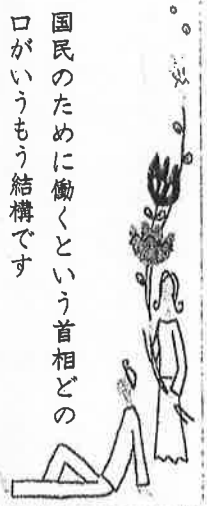 国民のために働くという首相どの
口がいうもう結構です